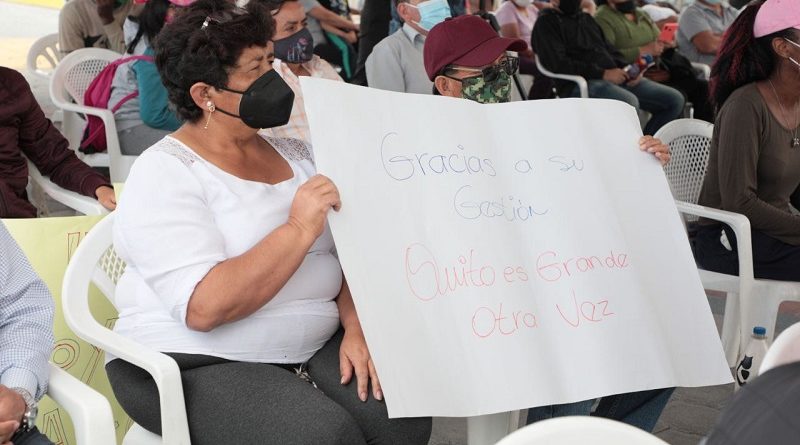 Gracias a su
Gestión
Quito es Grande
Otra Vez